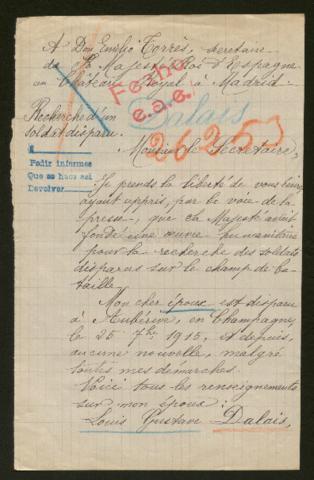 A Don Emilio Torrès, secrétaire
de Sa Majesté le Roi d'Espagne
au Château Royal à Madrid.
Fecho
e.a.e.
Dalais
Recherche d'un
soldat disparu.
26253
Monsieur le Secrétaire,
Pedir informes
Que se haga así
Devolver
Je prends la liberté de vous
ayant appris, par la voie de la
presse, que Sa Majesté avait
fondé une œuvre humanitaire
pour la recherche des soldats
disparus sur le champ de ba-
taille.
Mon cher époux est disparu
à Aubérive, en Champagne,
le 25 7bre 1915, et depuis,
aucune nouvelle, malgré
toutes mes démarches.
Voici tous les renseignements
sur mon époux:
Louis Gustave Dalais,